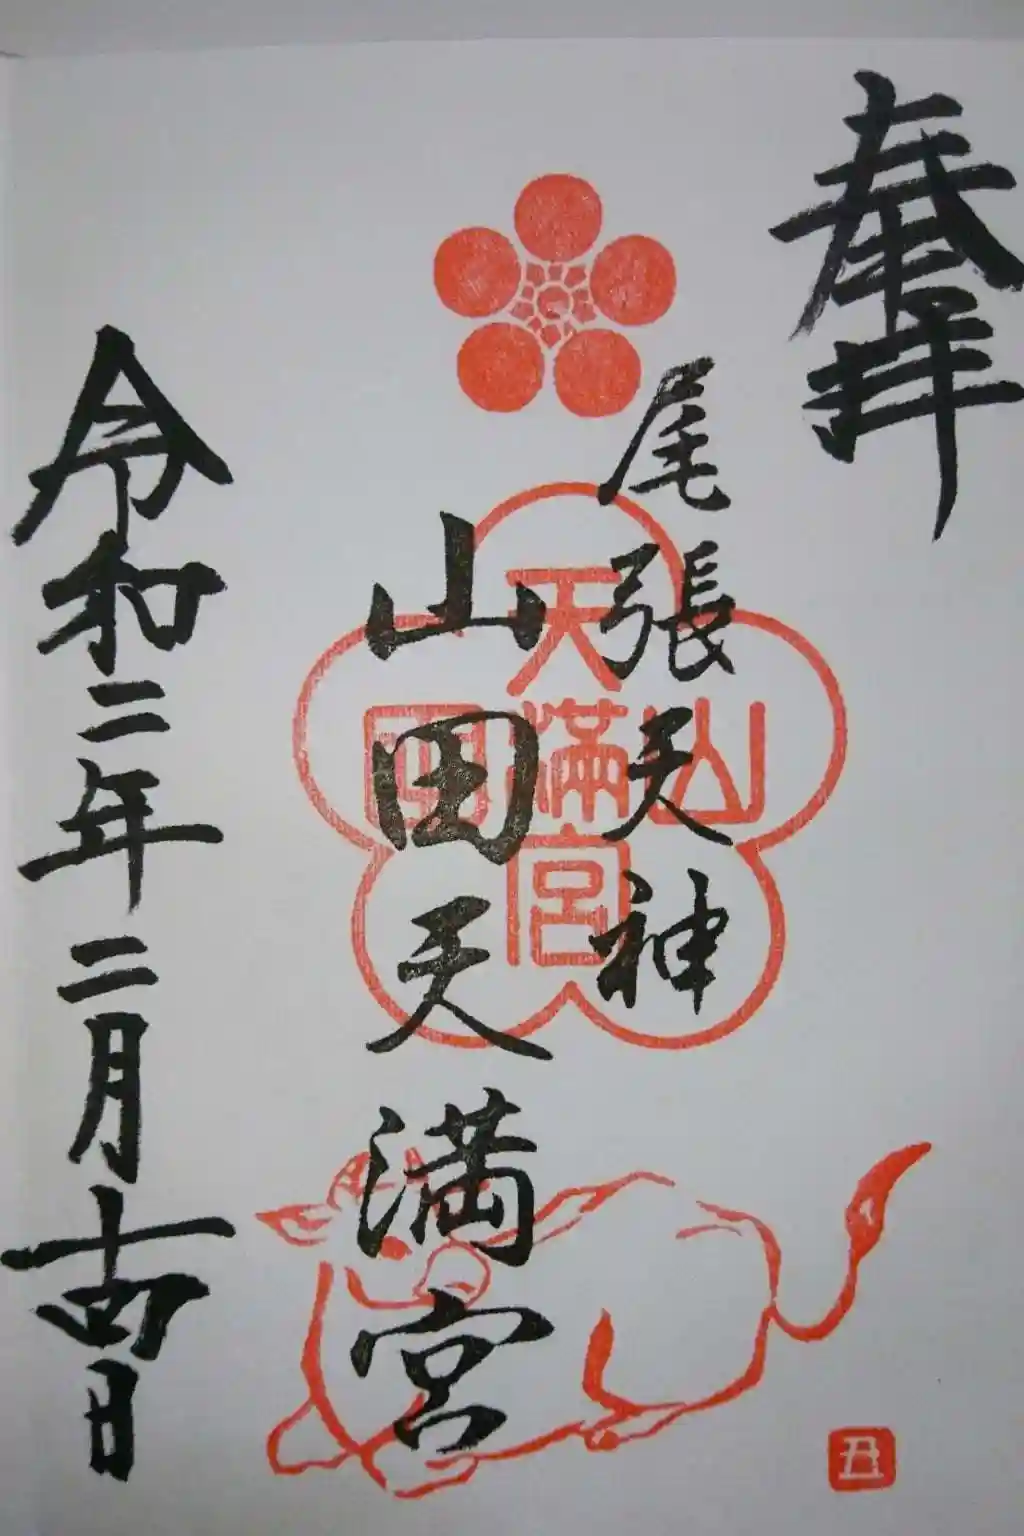 奉拝
尾張天神
山田天満宮
令和二年二月十四日
天満宮
山
田
丑